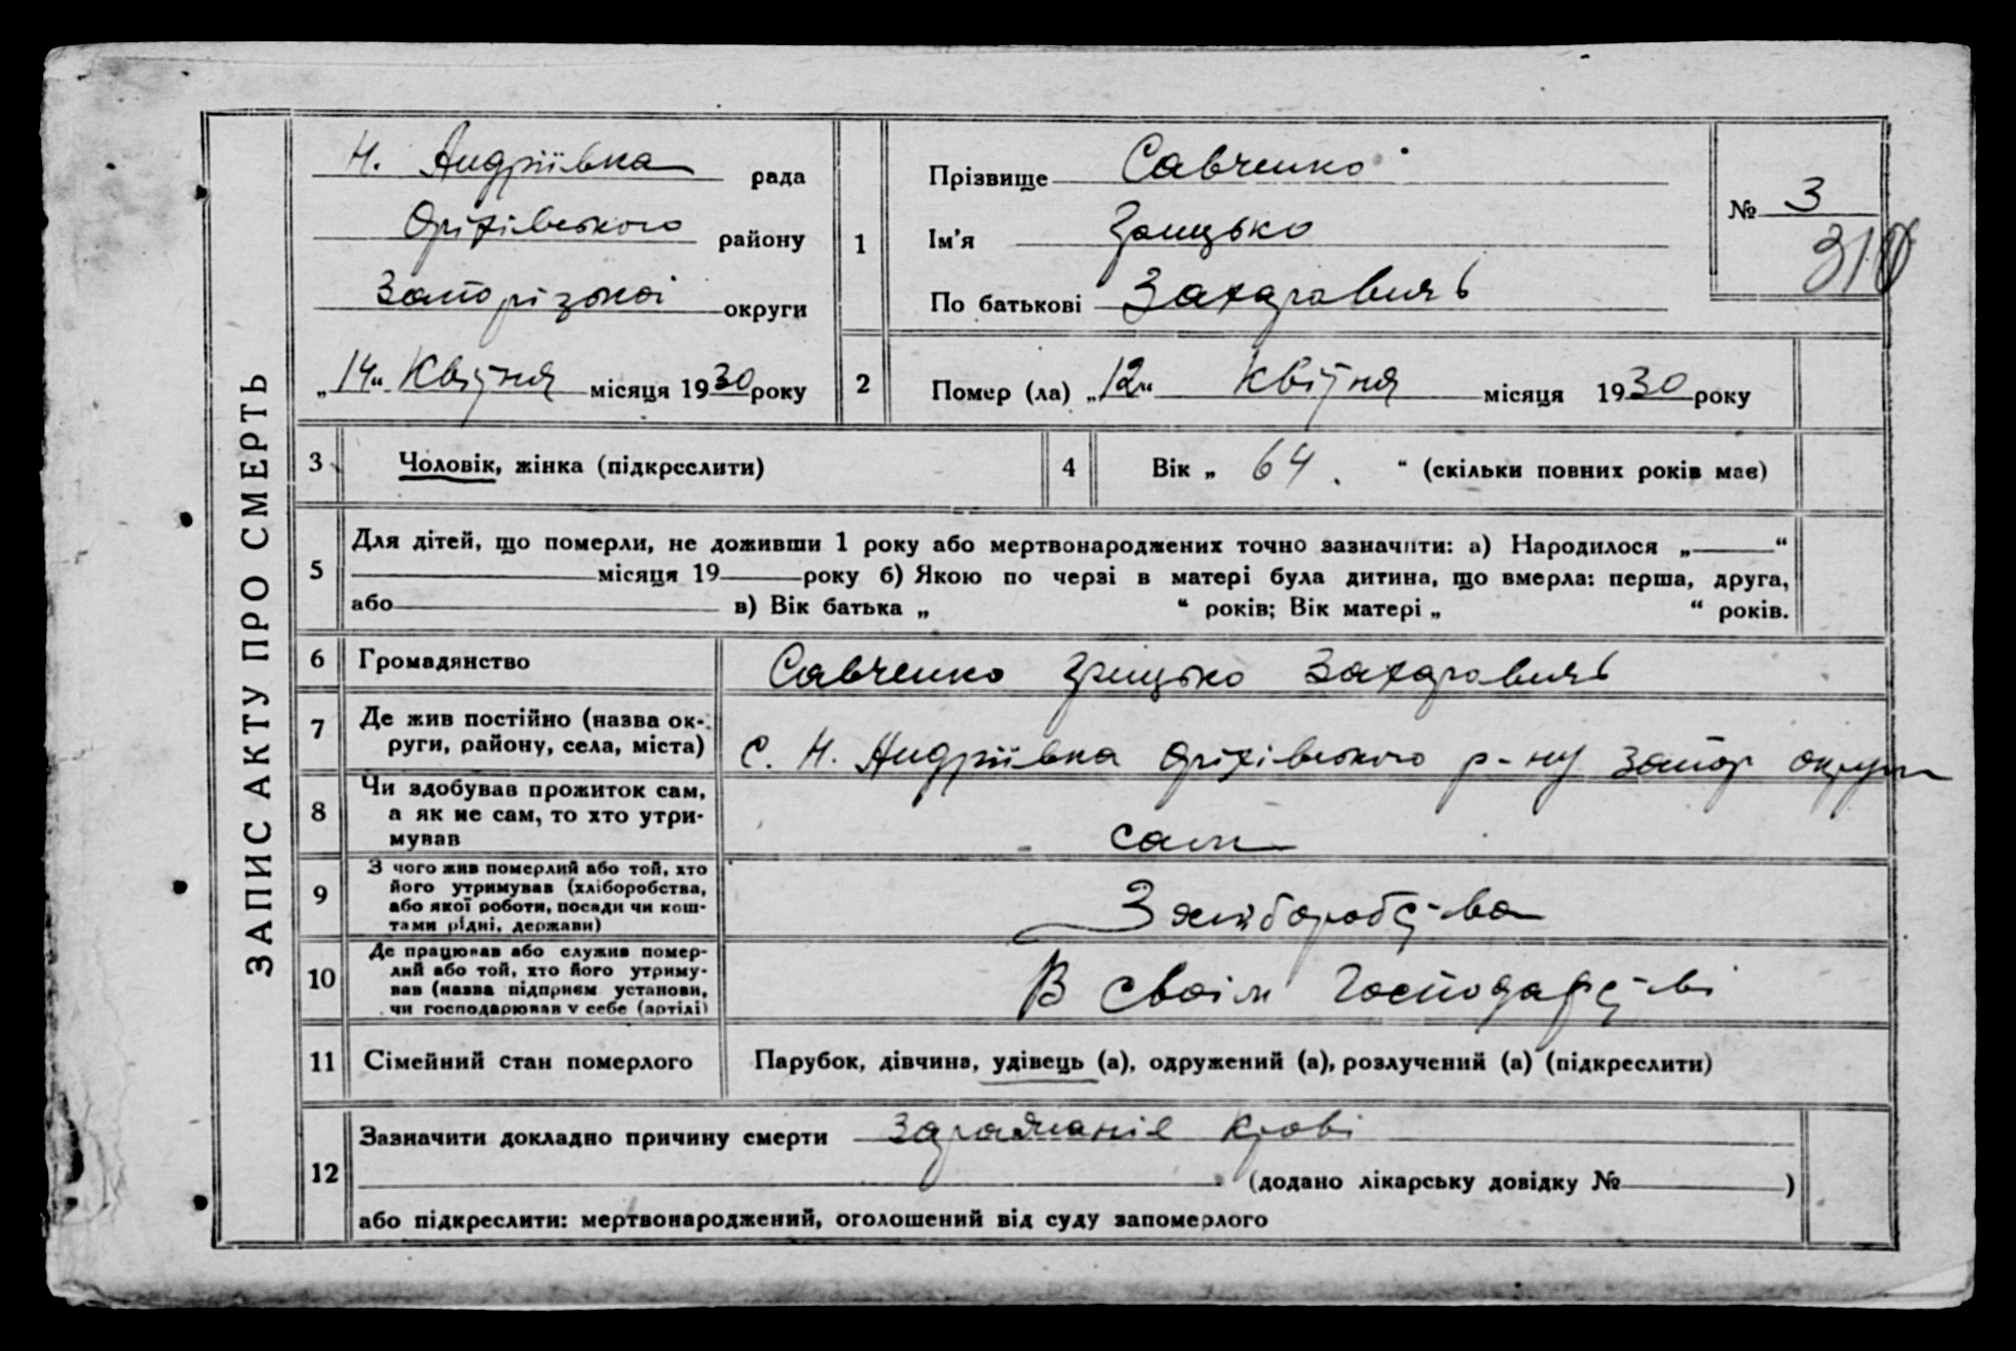 ЗАПИС АКТУ ПРО СМЕРТЬ
Н. Андріївка рада
Оріхівського району
Запорізької округи
„14“ Квітня місяця 1930 року
1
Прізвище Савченко
Ім'я Грицько
По батькові Захарович
№ 3
310
2
Помер (ла) „12“ Квітня місяця 1930 року
3 Чоловік, жінка (підкреслити)
4 Вік „ 64. “ (скільки повних років має)
5 Для дітей, що померли, не доживши 1 року або мертвонароджених точно зазначити: а) Народилося „ “
місяця 19 року б) Якою по черзі в матері була дитина, що вмерла: перша, друга,
або в) Вік батька „ “ років; Вік матері „ “ років.
6 Громадянство Савченко Грицько Захарович
7 Де жив постійно (назва ок-
руги, району, села, міста) с. Н. Андріївка Оріхівського р-ну Запор округи
8 Чи здобував прожиток сам,
а як не сам, то хто утри-
мував сам
9 З чого жив померлий або той, хто
його утримував (хліборобства,
або якої роботи, посади чи кош-
тами рідні, держави) З хліборобства
10 Де працював або служив помер-
лий або той, хто його утриму-
вав (назва підприєм установи,
чи господарював у себе (артілі) В своїм господарстві
11 Сімейний стан померлого Парубок, дівчина, удівець (а), одружений (а), розлучений (а) (підкреслити)
12 Зазначити докладно причину смерти крові
(додано лікарську довідку № )
або підкреслити: мертвонароджений, оголошений від суду запомерлого